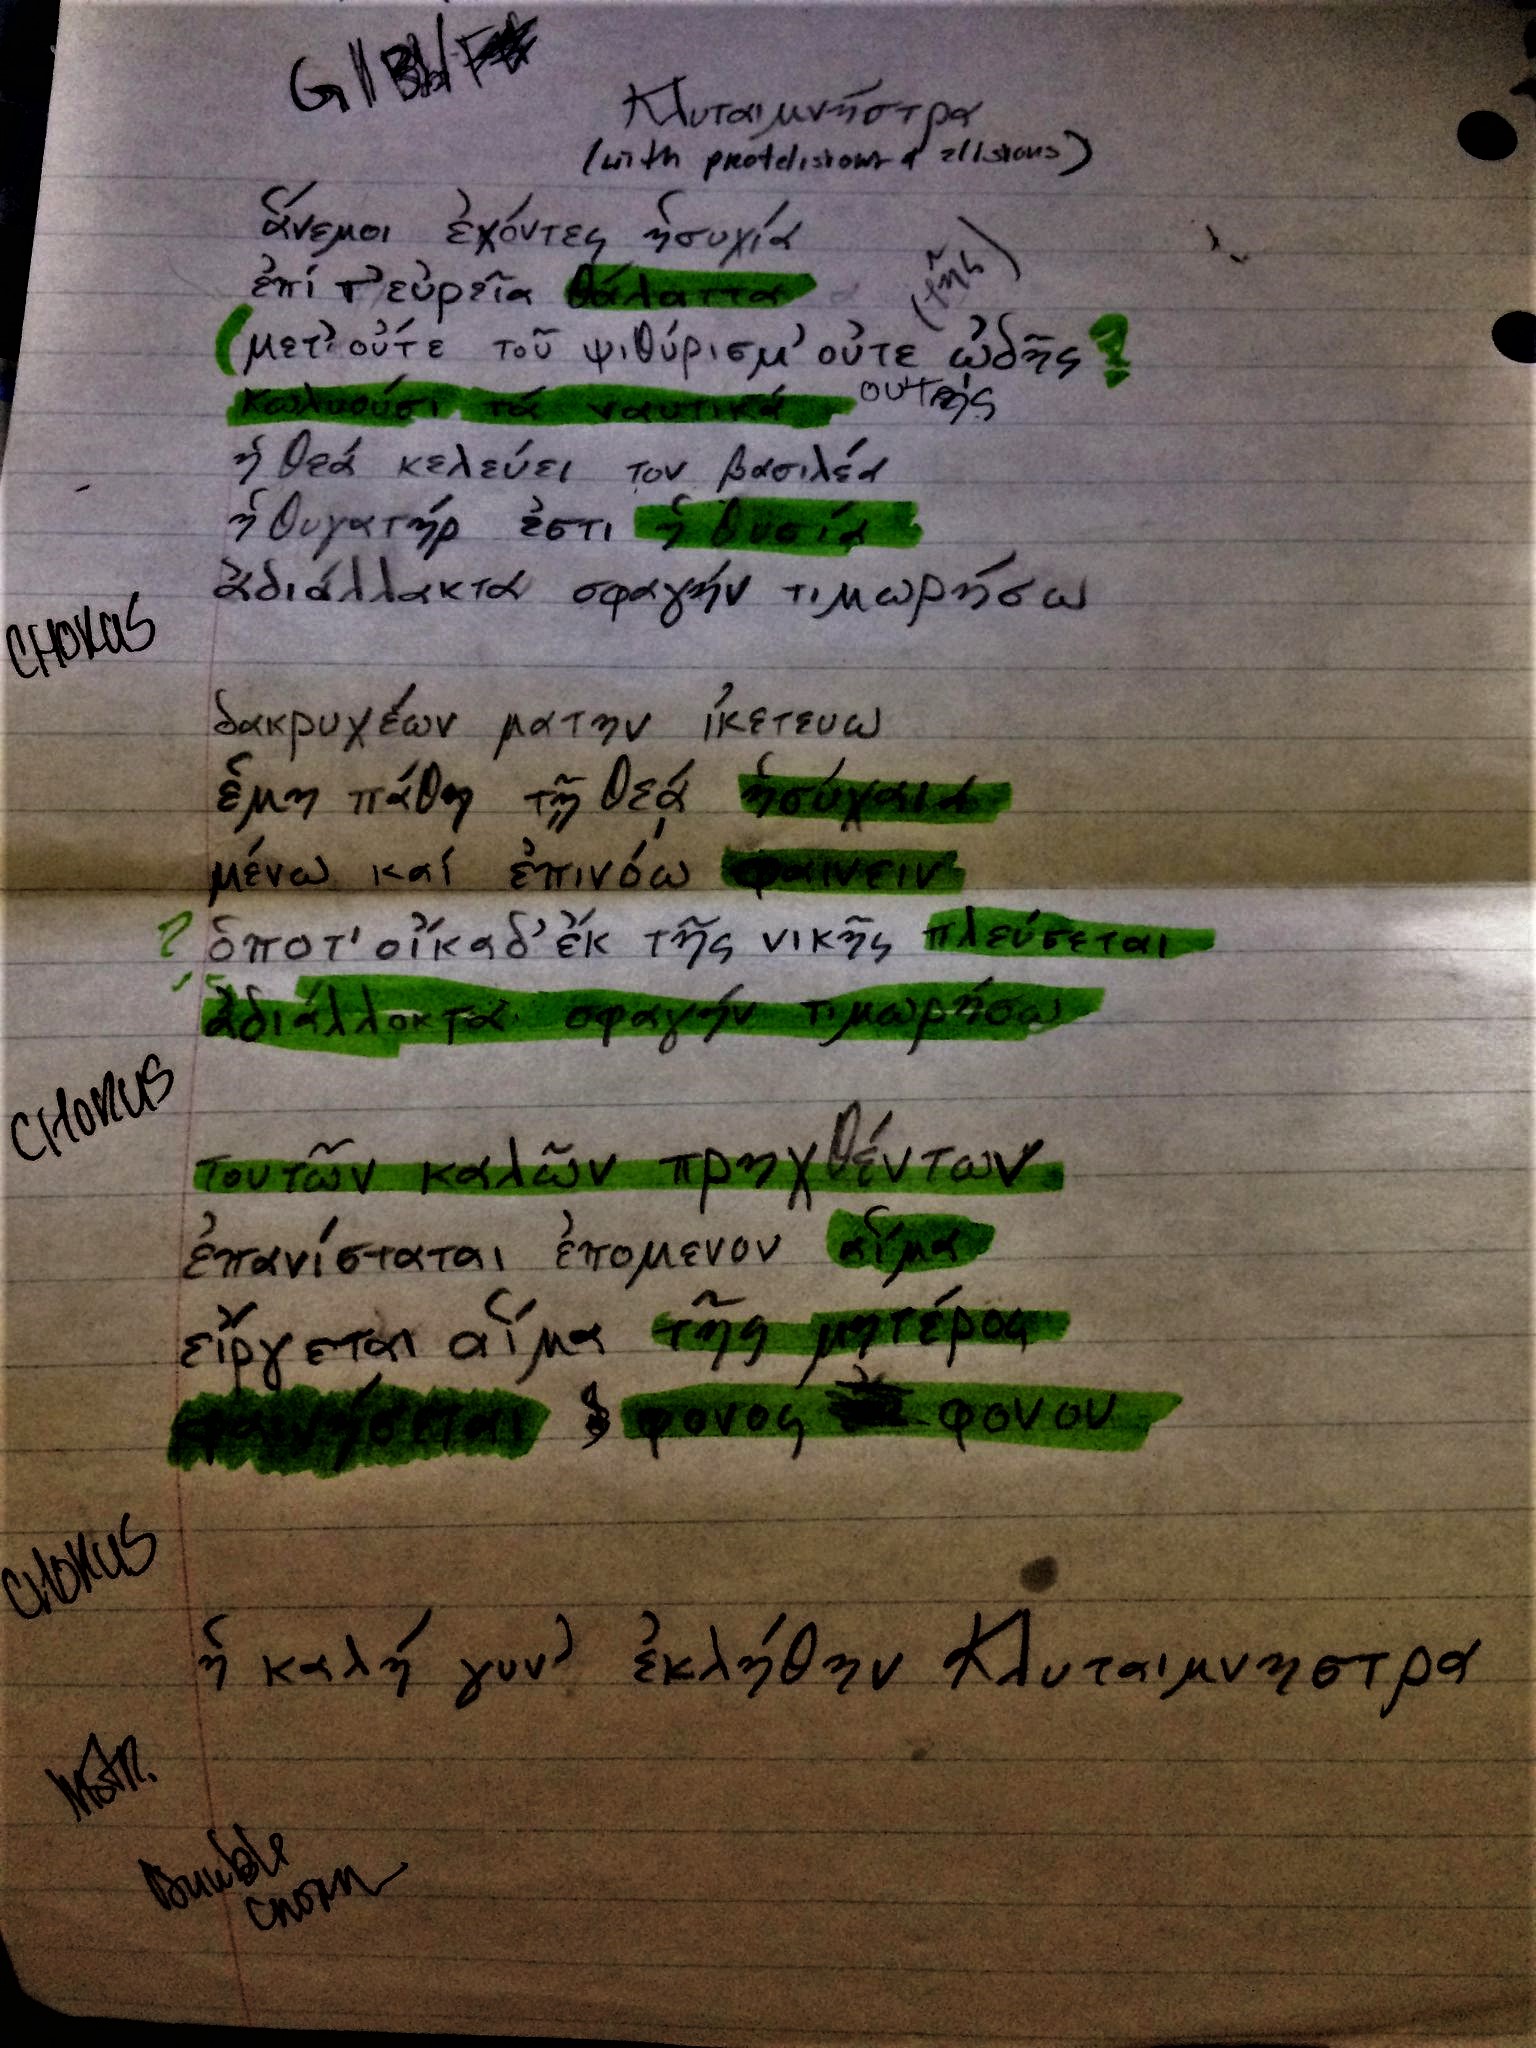 G || Bb/F
Κλυταιμνήστρα
(with prodelisions & elisions)
ἅνεμοι ἐχόντες ἡσυχίά
ἐπί τ' εὐρεῖα θάλαττα
(τῆς)
(μετ' οὐτε τοῦ ψιθύρισμ' οὐτε ᾠδῆς ?
κωλυούσι τά ναυτικά οὐτῆς
ἡ θεά κελεύει τον βασιλέα
ἡ θυγατήρ ἐστι ἡ θυσίά
ἀδιάλλακτα σφαγήν τιμωρήσω
CHORUS
δακρυχέών ματην ἱκετευω
ἐμη πάθη τῇ θεά ἡσύχαιά
μένω καί ἐπινόώ φαινειν
? ὁποτ' οἴκαδ' ἐκ τῆς νικῆς πλεύσεται
ἀδιάλλοκτα σφαγήν τιμωρήσω
CHORUS
τουτῶν καλῶν πρηχθέντων
ἐπανίσταται ἐπομενον αἷμα
εἴργεται αἷμα τῆς μητέρος
φαινήσεται φονος φονου
CHORUS
ἡ καλή γυν' ἐκλήθην Κλυταιμνηστρα
Double